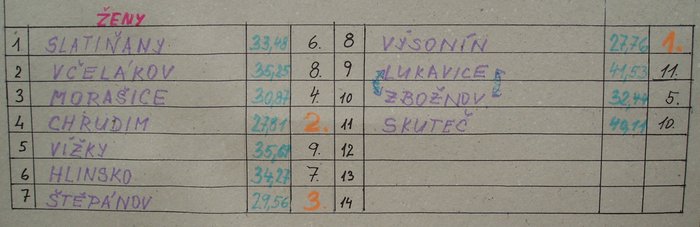 ŽENY
1 SLATIŇANY 33,48 6. 8 VÝSONÍN 27,76 1.
2 VČELÁKOV 35,25 8. 9 LUKAVICE 41,53 11.
3 MORAŠICE 30,87 4. 10 ZBOŽNOV 32,44 5.
4 CHRUDIM 27,81 2. 11 SKUTEČ 49,11 10.
5 VÍŽKY 35,61 9. 12
6 HLINSKO 34,27 7. 13
7 ŠTĚPÁNOV 29,56 3. 14